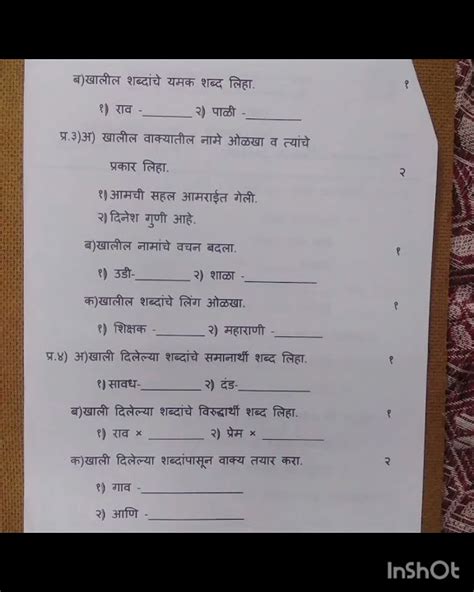 ब)खालील शब्दांचे यमक शब्द लिहा. १
१) राव -________ २) पाळी -________
प्र.३)अ) खालील वाक्यातील नामे ओळखा व त्यांचे
प्रकार लिहा. २
१)आमची सहल आमराईत गेली.
२)दिनेश गुणी आहे.
ब)खालील नामांचे वचन बदला. १
१) उडी-________ २) शाळा -__________
क)खालील शब्दांचे लिंग ओळखा. १
१) शिक्षक -_______ २) महाराणी -_______
प्र.४) अ)खाली दिलेल्या शब्दांचे समानार्थी शब्द लिहा. १
१)सावध-________ २) दंड-__________
ब)खाली दिलेल्या शब्दांचे विरुद्धार्थी शब्द लिहा. १
१) राव × _________ २) प्रेम × _________
क)खाली दिलेल्या शब्दांपासून वाक्य तयार करा. २
१) गाव -______________
२) आणि -______________
InShOt